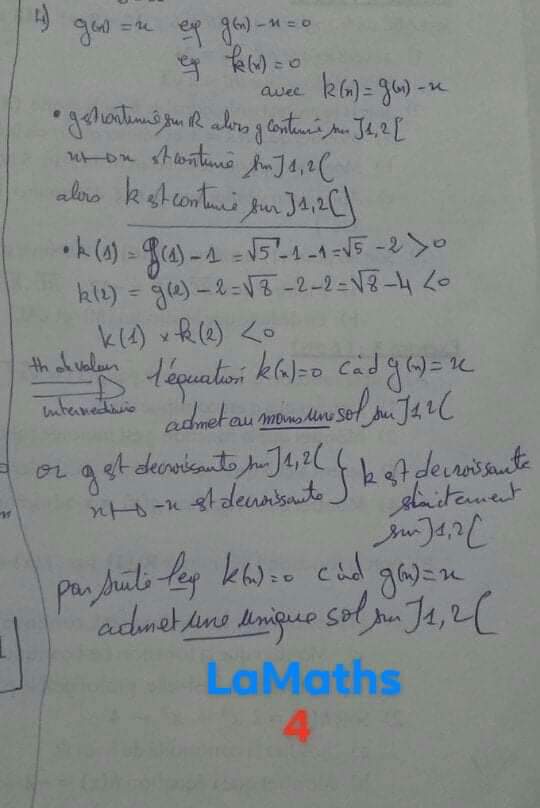 4) g(x) = x éq g(x) - x = 0
éq k(x) = 0
avec k(x) = g(x) - x
• g est continue sur IR alors g continue sur ]1,2[
x ↦ x est continue sur ]1,2[
alors k est continue sur ]1,2[
• k(1) = g(1) - 1 = √5 - 1 - 1 = √5 - 2 > 0
k(2) = g(2) - 2 = √8 - 2 - 2 = √8 - 4 < 0
k(1) × k(2) < 0
th de valeur
intermédiaire
l'équation k(x) = 0 càd g(x) = x
admet au moins une sol sur ]1,2[
or g est decroissante sur ]1,2[ } k est decroissante
x ↦ -x est decroissante strictement
sur ]1,2[
par suite l'eq k(x) = 0 càd g(x) = x
admet une unique sol sur ]1,2[
LaMaths
4